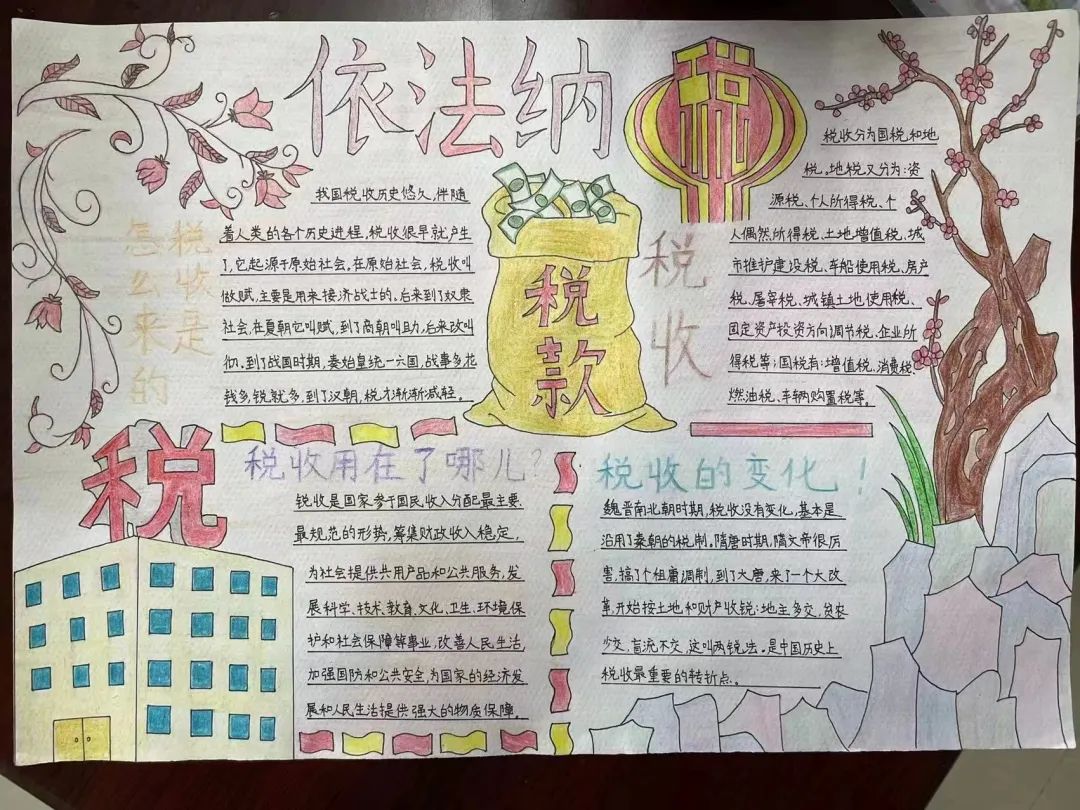 依法纳税
税收是
怎么来的
我国税收历史悠久,伴随
着人类的各个历史进程,税收很早就产生
了,它起源于原始社会。在原始社会,税收叫
做赋,主要是用来接济战士的。后来到了奴隶
社会,在夏朝它叫赋,到了商朝叫助,后来改叫
彻,到了战国时期,秦始皇统一六国,战事多花
钱多,税就多,到了汉朝,税才渐渐减轻。
税款
税收
税收分为国税和地
税,地税又分为:资
源税、个人所得税、个
人偶然所得税、土地增值税、城
市维护建设税、车船使用税、房产
税、屠宰税、城镇土地使用税、
固定资产投资方向调节税、企业所
得税等;国税有:增值税、消费税
燃油税、车辆购置税等。
税
税收用在了哪儿?
税收是国家参于国民收入分配最主要.
最规范的形势,筹集财政收入稳定,
为社会提供共用产品和公共服务,发
展科学、技术、教育、文化、卫生、环境保
护和社会保障等事业,改善人民生活,
加强国防和公共安全,为国家的经济发
展和人民生活提供强大的物质保障。
税收的变化!
魏晋南北朝时期,税收没有变化,基本是
沿用了秦朝的税制。隋唐时期,隋文帝很厉
害,搞了个租庸调制,到了大唐,来了一个大改
革,开始按土地和财产收税:地主多交,贫农
少交,盲流不交,这叫两税法。是中国历史上
税收最重要的转折点。